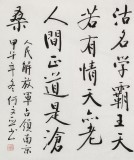 沽名学霸王天
若有情天亦老
人間正道是滄
桑
人民解放軍占領南京
甲午年冬何